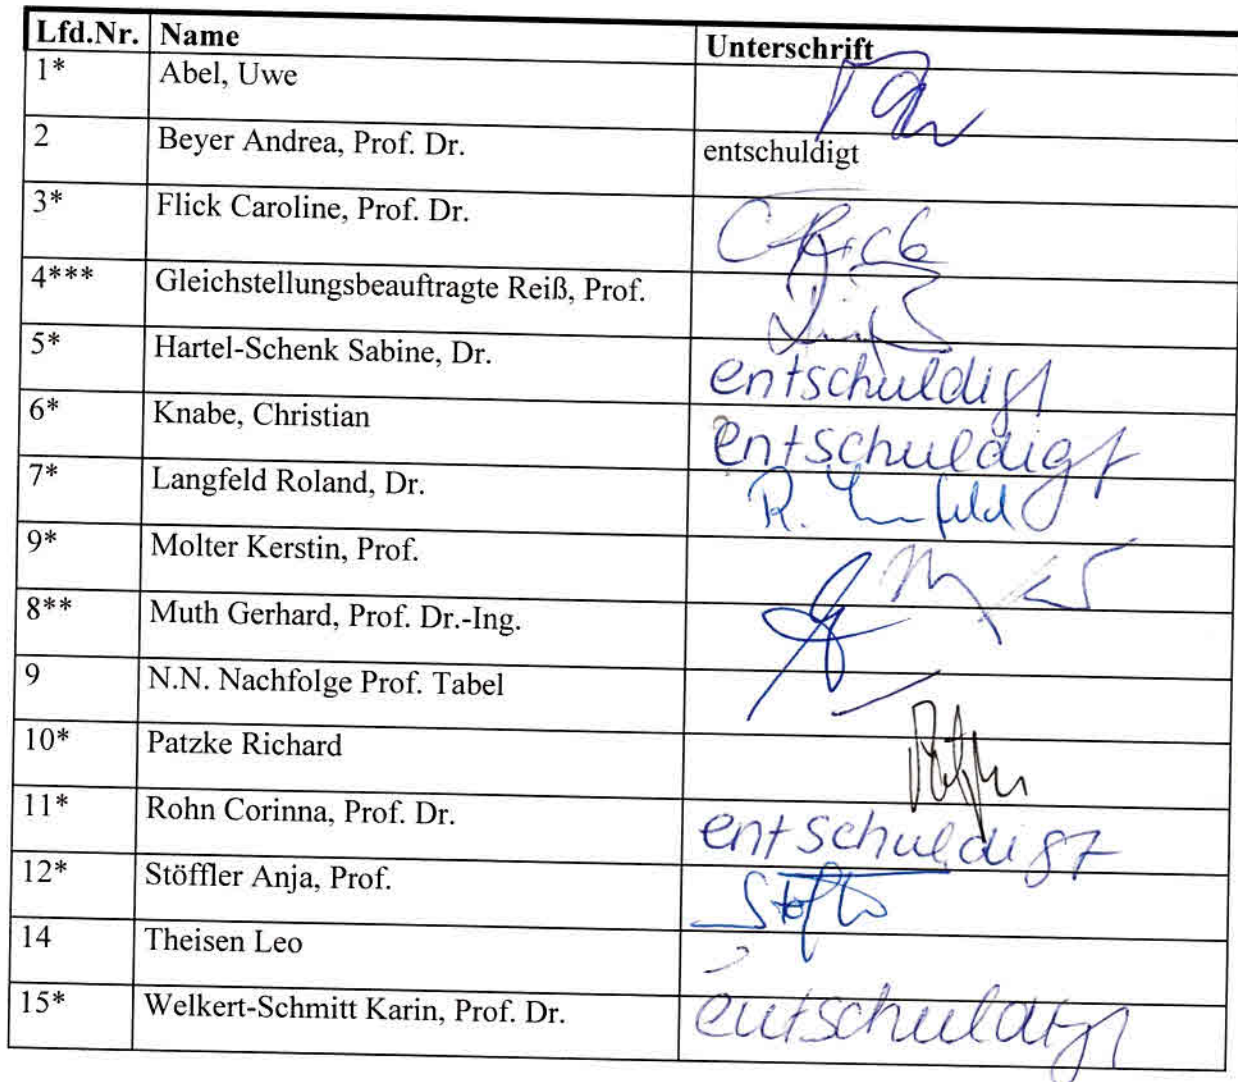 Lfd.Nr. Name Unterschrift
1* Abel, Uwe
2 Beyer Andrea, Prof. Dr. entschuldigt
3* Flick Caroline, Prof. Dr. C Flick
4*** Gleichstellungsbeauftragte Reiß, Prof.
5* Hartel-Schenk Sabine, Dr. entschuldigt
6* Knabe, Christian entschuldigt
7* Langfeld Roland, Dr. R. Langfeld
9* Molter Kerstin, Prof.
8** Muth Gerhard, Prof. Dr.-Ing.
9 N.N. Nachfolge Prof. Tabel
10* Patzke Richard
11* Rohn Corinna, Prof. Dr. entschuldigt
12* Stöffler Anja, Prof.
14 Theisen Leo
15* Welkert-Schmitt Karin, Prof. Dr. entschuldigt